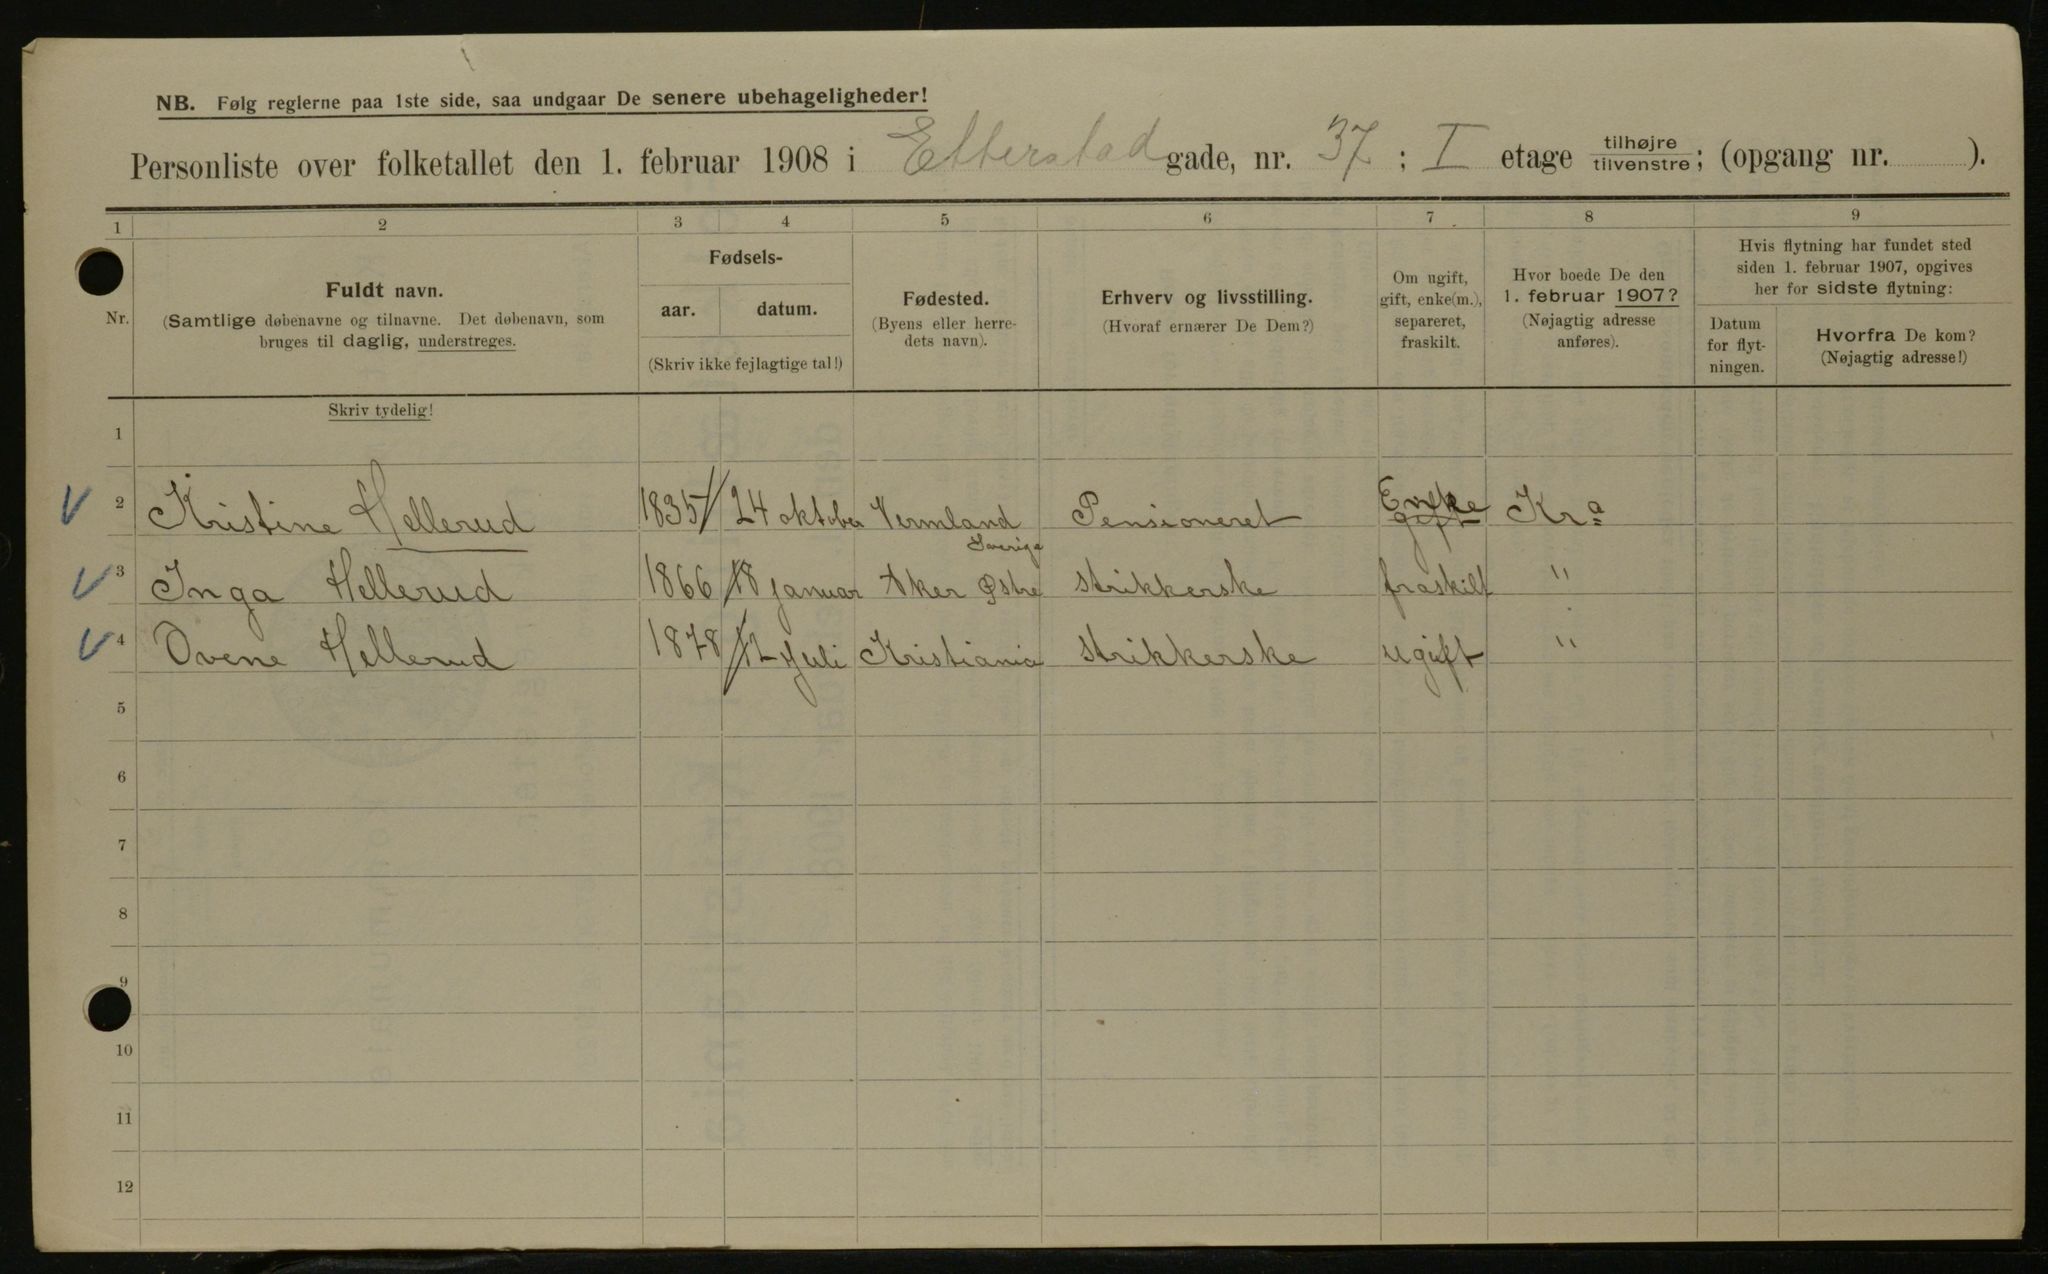 NB. Følg reglerne paa 1ste side, saa undgaar De senere ubehageligheder!
Personliste over folketallet den 1. februar 1908 i Etterstad gade, nr. 37 ; I etage tilhøjre tilvenstre; (opgang nr. ).
1 2 3 4 5 6 7 8 9
Nr.
Fuldt navn.
(Samtlige døbenavne og tilnavne. Det døbenavn, som
bruges til daglig, understreges.
Fødsels-
aar. datum.
(Skriv ikke fejlagtige tal!)
Fødested.
(Byens eller herre-
dets navn).
Erhverv og livsstilling.
(Hvoraf ernærer De Dem?)
Om ugift,
gift, enke(m.),
separeret,
fraskilt.
Hvor boede De den
1. februar 1907?
(Nøjagtig adresse
anføres).
Hvis flytning har fundet sted
siden 1. februar 1907, opgives
her for sidste flytning:
Datum
for flyt-
ningen.
Hvorfra De kom?
(Nøjagtig adresse!)
Skriv tydelig!
1
2 Kristine Hellerud 1835 24 oktober Vermland Sverige Pensioneret Enke gift Kra
3 Inga Hellerud 1866 18 januar Aker Østre strikkerske fraskilt "
4 Ovene Hellerud 1878 12 Juli Kristiania strikkerske ugift "
5
6
7
8
9
10
11
12